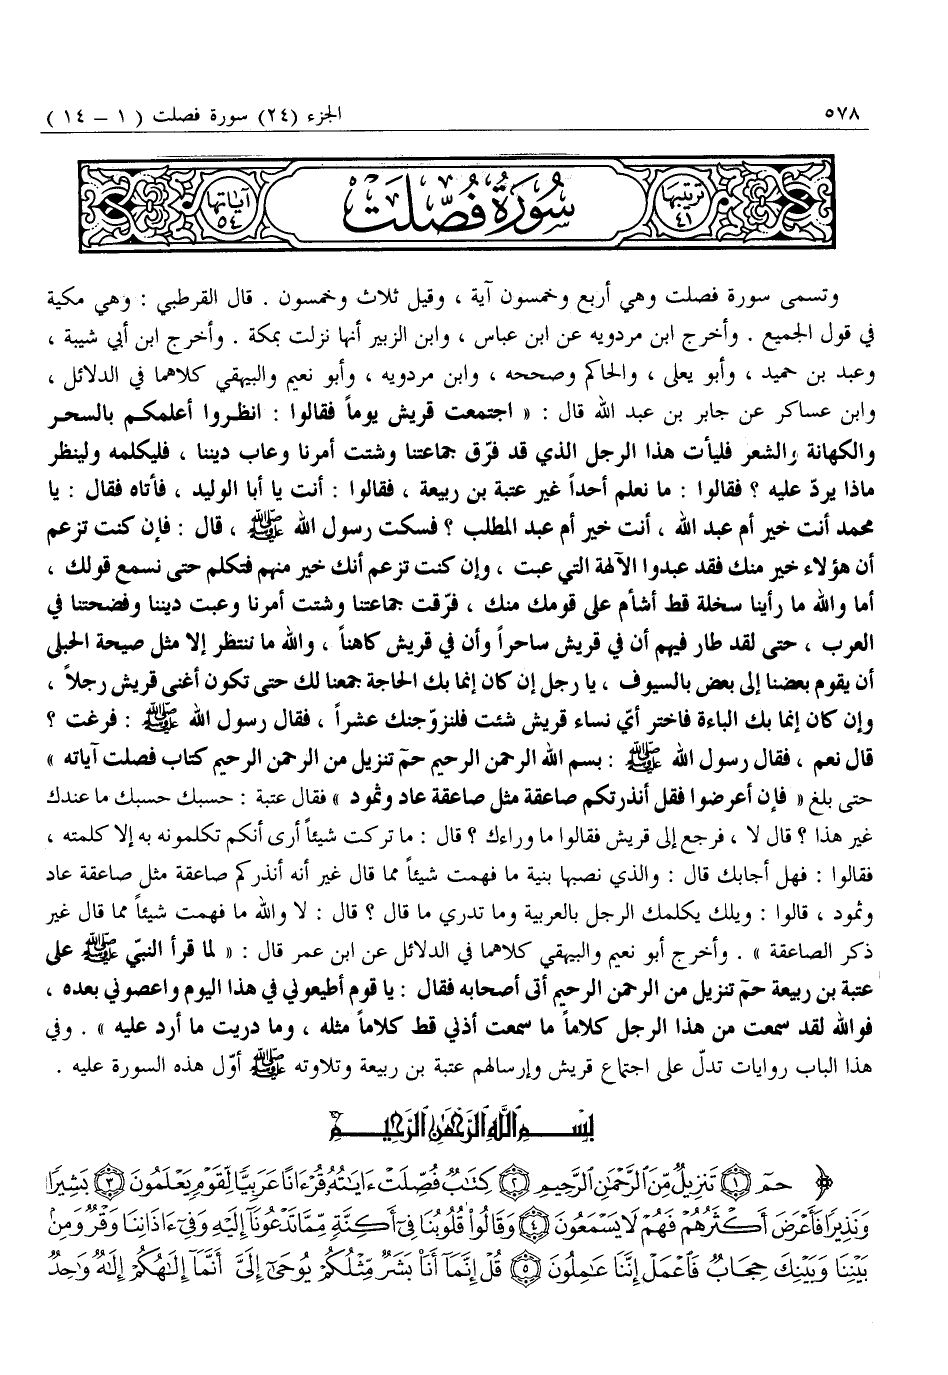 ٥٧٨
الجزء (٢٤) سورة فصلت ( ١ – ١٤ )
ترتيبها ٤١
سورة فصلت
آياتها ٥٤
وتسمى سورة فصلت وهي أربع وخمسون آية ، وقيل ثلاث وخمسون . قال القرطبي : وهي مكية
في قول الجميع . وأخرج ابن مردويه عن ابن عباس ، وابن الزبير أنها نزلت بمكة . وأخرج ابن أبي شيبة ،
وعبد بن حميد ، وأبو يعلى ، والحاكم وصححه ، وابن مردويه ، وأبو نعيم والبيهقي كلاهما في الدلائل ،
وابن عساكر عن جابر بن عبد الله قال : « اجتمعت قريش يوماً فقالوا : انظروا أعلمكم بالسحر
والكهانة والشعر فليأت هذا الرجل الذي قد فرّق جماعتنا وشتت أمرنا وعاب ديننا ، فليكلمه ولينظر
ماذا يردّ عليه ؟ فقالوا : ما نعلم أحداً غير عتبة بن ربيعة ، فقالوا : أنت يا أبا الوليد ، فأتاه فقال : يا
محمد أنت خير أم عبد الله ، أنت خير أم عبد المطلب ؟ فسكت رسول الله ﷺ ، قال : فإن كنت تزعم
أن هؤلاء خير منك فقد عبدوا الآلهة التي عبت ، وإن كنت تزعم أنك خير منهم فتكلم حتى نسمع قولك ،
أما والله ما رأينا سخلة قط أشأم على قومك منك ، فرّقت جماعتنا وشتت أمرنا وعبت ديننا وفضحتنا في
العرب ، حتى لقد طار فيهم أن في قريش ساحراً وأن في قريش كاهناً ، والله ما ننتظر إلا مثل صيحة الحبلى
أن يقوم بعضنا إلى بعض بالسيوف ، يا رجل إن كان إنما بك الحاجة جمعنا لك حتى تكون أغنى قريش رجلاً ،
وإن كان إنما بك الباءة فاختر أيّ نساء قريش شئت فلنزوّجنك عشراً ، فقال رسول الله ﷺ : فرغت ؟
قال نعم ، فقال رسول الله ﷺ : بسم الله الرحمن الرحيم حمۤ تنزيل من الرحمن الرحيم كتاب فصلت آياته »
حتى بلغ « فإن أعرضوا فقل أنذرتكم صاعقة مثل صاعقة عاد وثمود » فقال عتبة : حسبك حسبك ما عندك
غير هذا ؟ قال لا ، فرجع إلى قريش فقالوا ما وراءك ؟ قال : ما تركت شيئاً أرى أنكم تكلمونه به إلا كلمته ،
فقالوا : فهل أجابك قال : والذي نصبها بنية ما فهمت شيئاً مما قال غير أنه أنذركم صاعقة مثل صاعقة عاد
وثمود ، قالوا : ويلك يكلمك الرجل بالعربية وما تدري ما قال ؟ قال : لا والله ما فهمت شيئاً مما قال غير
ذكر الصاعقة » . وأخرج أبو نعيم والبيهقي كلاهما في الدلائل عن ابن عمر قال : « لما قرأ النبيّ ﷺ على
عتبة بن ربيعة حمۤ تنزيل من الرحمن الرحيم أتى أصحابه فقال : يا قوم أطيعوني في هذا اليوم واعصوني بعده ،
فوالله لقد سمعت من هذا الرجل كلاماً ما سمعت أذني قط كلاماً مثله ، وما دريت ما أرد عليه » . وفي
هذا الباب روايات تدلّ على اجتماع قريش وإرسالهم عتبة بن ربيعة وتلاوته ﷺ أوّل هذه السورة عليه .
بِسْمِ اللَّهِ الرَّحْمَٰنِ الرَّحِيمِ
﴿ حمٓ ١ تَنزِيلٌ مِّنَ ٱلرَّحْمَٰنِ ٱلرَّحِيمِ ٢ كِتَٰبٌ فُصِّلَتْ ءَايَٰتُهُۥ قُرْءَانًا عَرَبِيًّا لِّقَوْمٍ يَعْلَمُونَ ٣ بَشِيرًا
وَنَذِيرًا فَأَعْرَضَ أَكْثَرُهُمْ فَهُمْ لَا يَسْمَعُونَ ٤ وَقَالُوا۟ قُلُوبُنَا فِىٓ أَكِنَّةٍ مِّمَّا تَدْعُونَآ إِلَيْهِ وَفِىٓ ءَاذَانِنَا وَقْرٌ وَمِنۢ
بَيْنِنَا وَبَيْنِكَ حِجَابٌ فَٱعْمَلْ إِنَّنَا عَٰمِلُونَ ٥ قُلْ إِنَّمَآ أَنَا۠ بَشَرٌ مِّثْلُكُمْ يُوحَىٰٓ إِلَىَّ أَنَّمَآ إِلَٰهُكُمْ إِلَٰهٌ وَٰحِدٌ